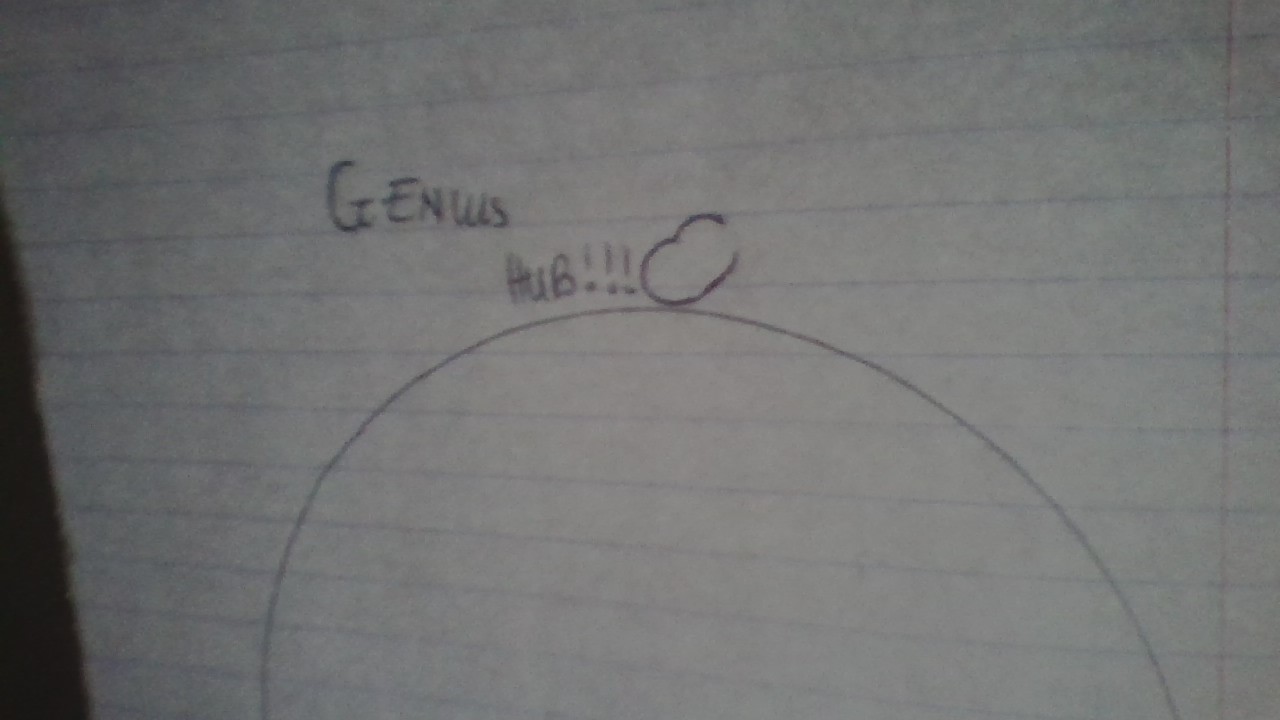 GENIUS
HUB!!!